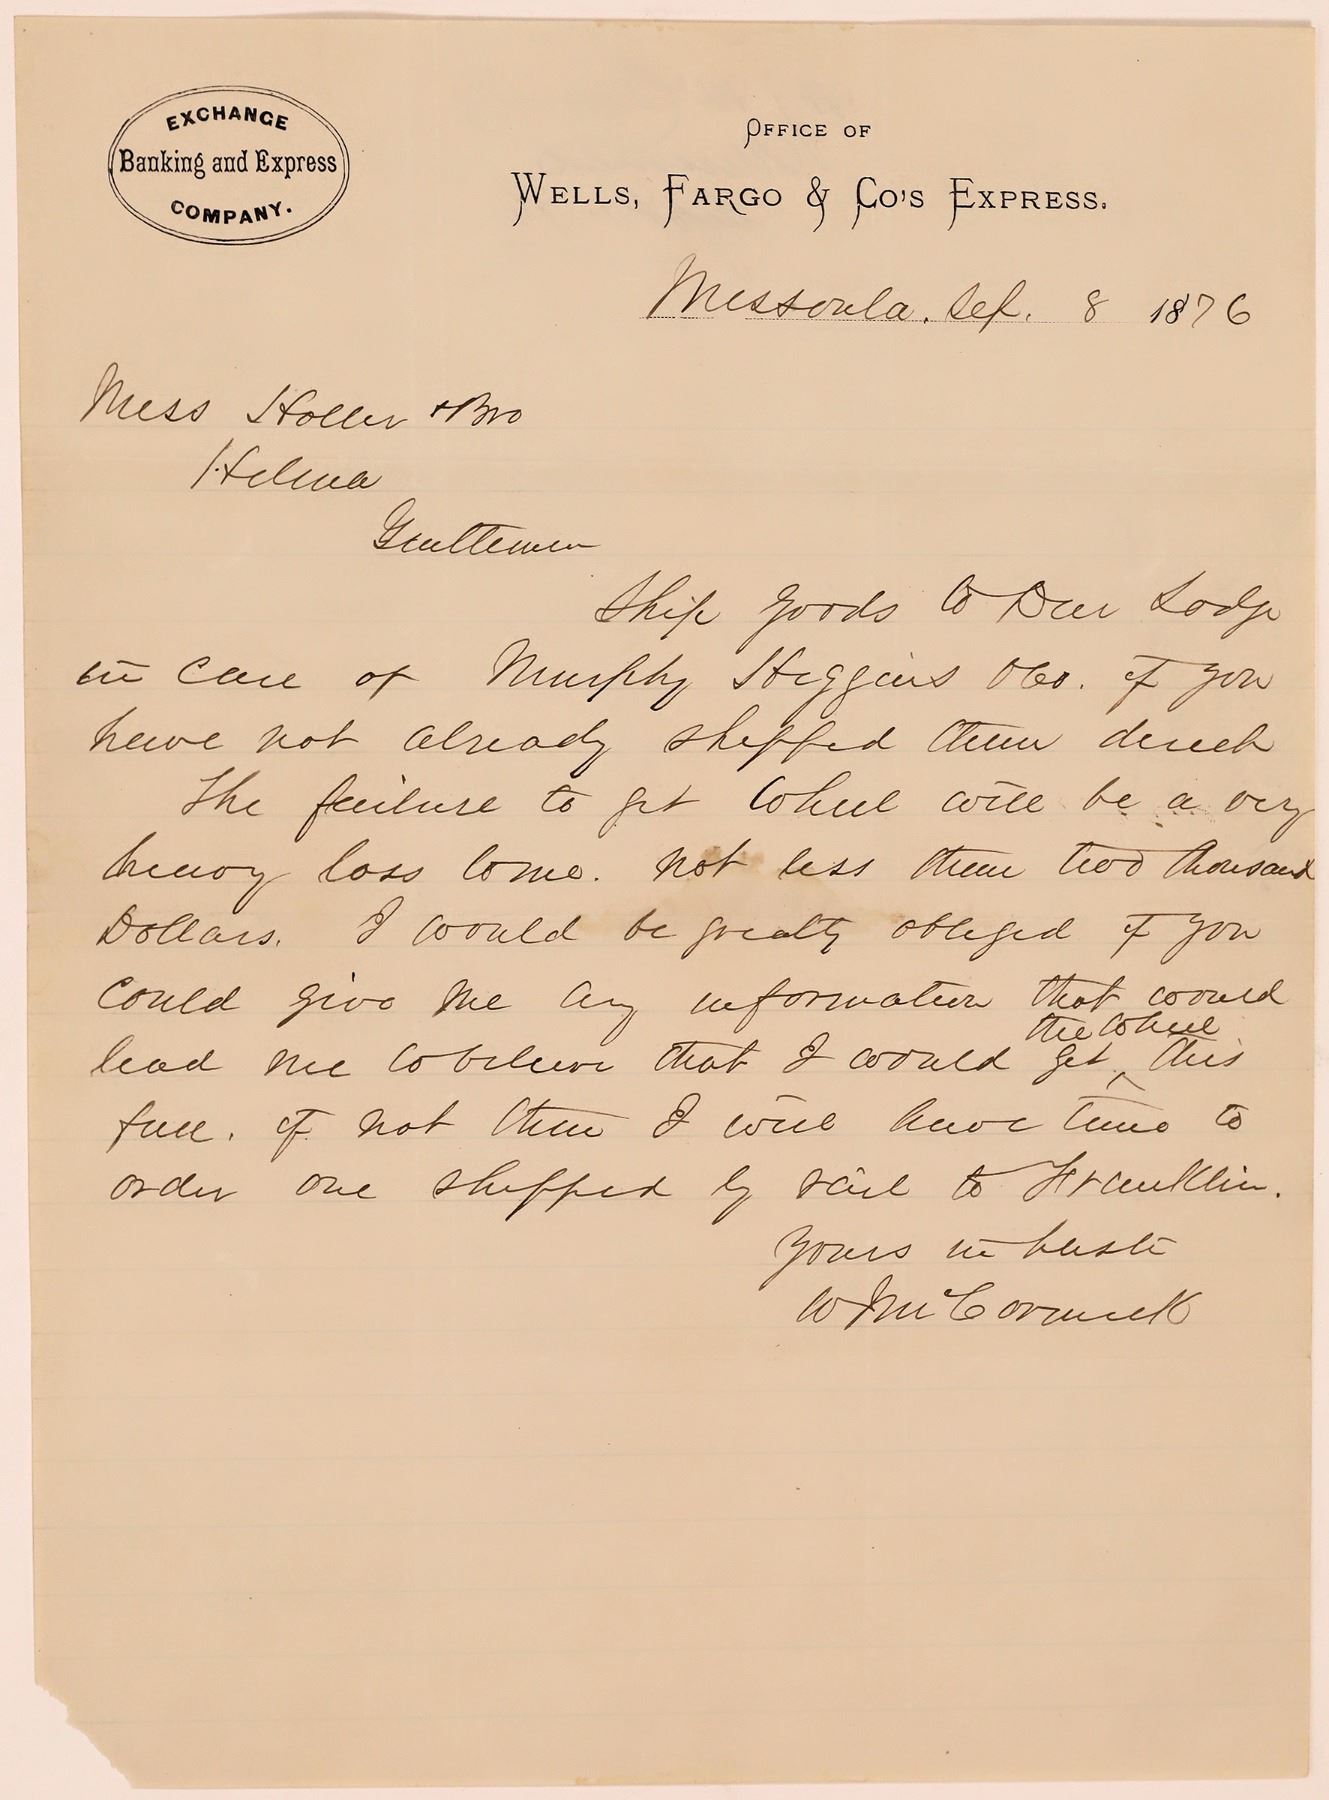 EXCHANGE
Banking and Express
COMPANY.
OFFICE OF
WELLS, FARGO & CO'S EXPRESS.
Missoula. Sep. 8 1876
Mess Holter & Bro
Helena
Gentlemen
Ship goods to Deer Lodge
in care of Murphy Higgins & Co. if you
have not already shipped them direct
The failure to get Wheel will be a very
heavy loss to me. not less than two thousand
Dollars. I would be greatly obliged if you
could give me any information that would
the Wheel
lead me to believe that I would get ^ this
fall. if not then I will have time to
order one shipped by rail to Franklin.
Yours in haste
W J McCormick